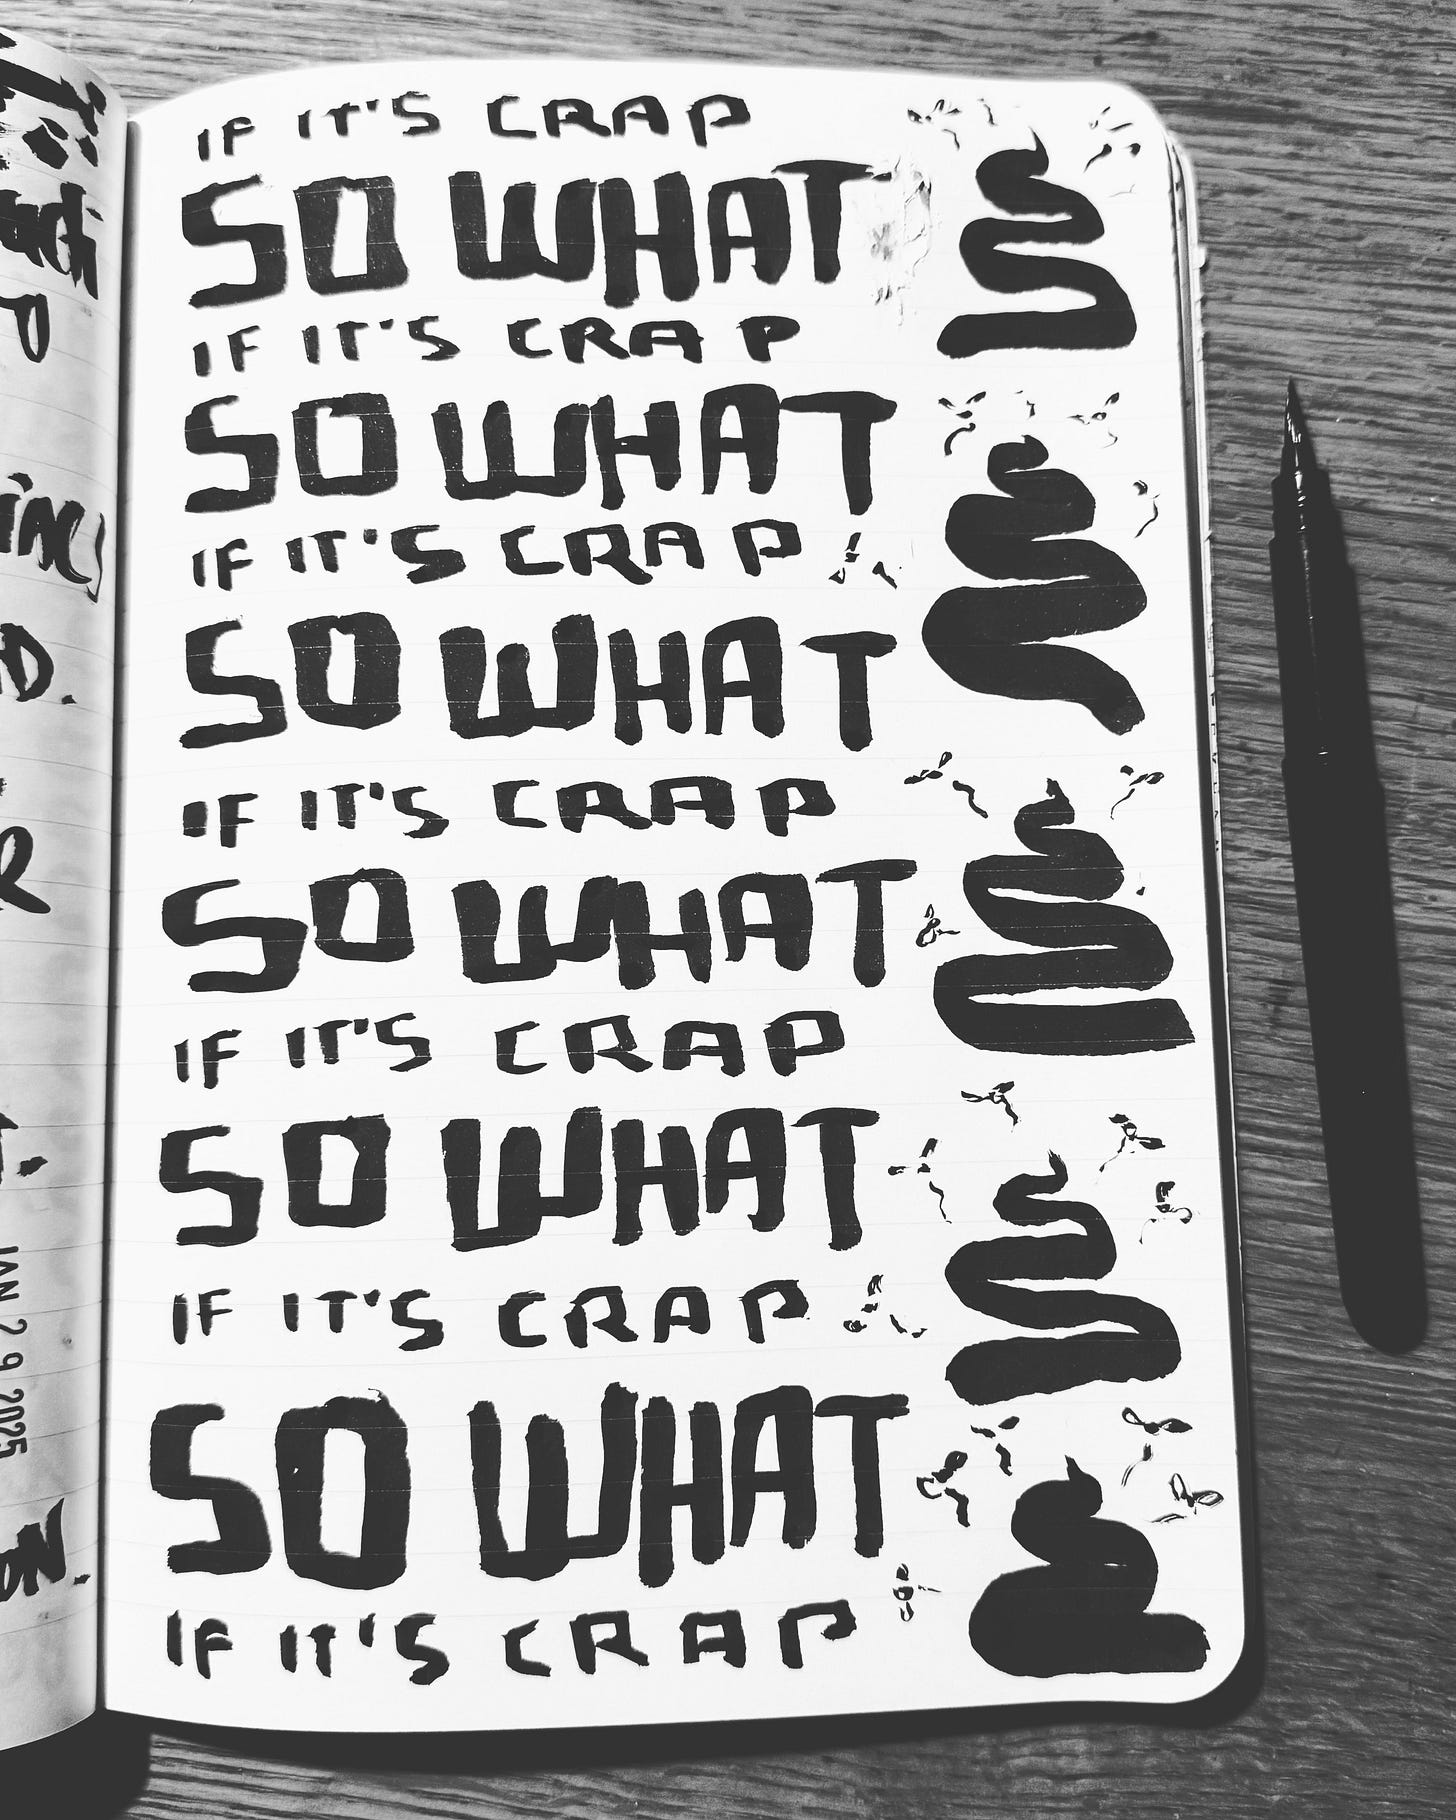 IF IT'S CRAP
SO WHAT
IF IT'S CRAP
SO WHAT
IF IT'S CRAP
SO WHAT
IF IT'S CRAP
SO WHAT
IF IT'S CRAP
SO WHAT
IF IT'S CRAP
SO WHAT
IF IT'S CRAP
JAN 29 2025